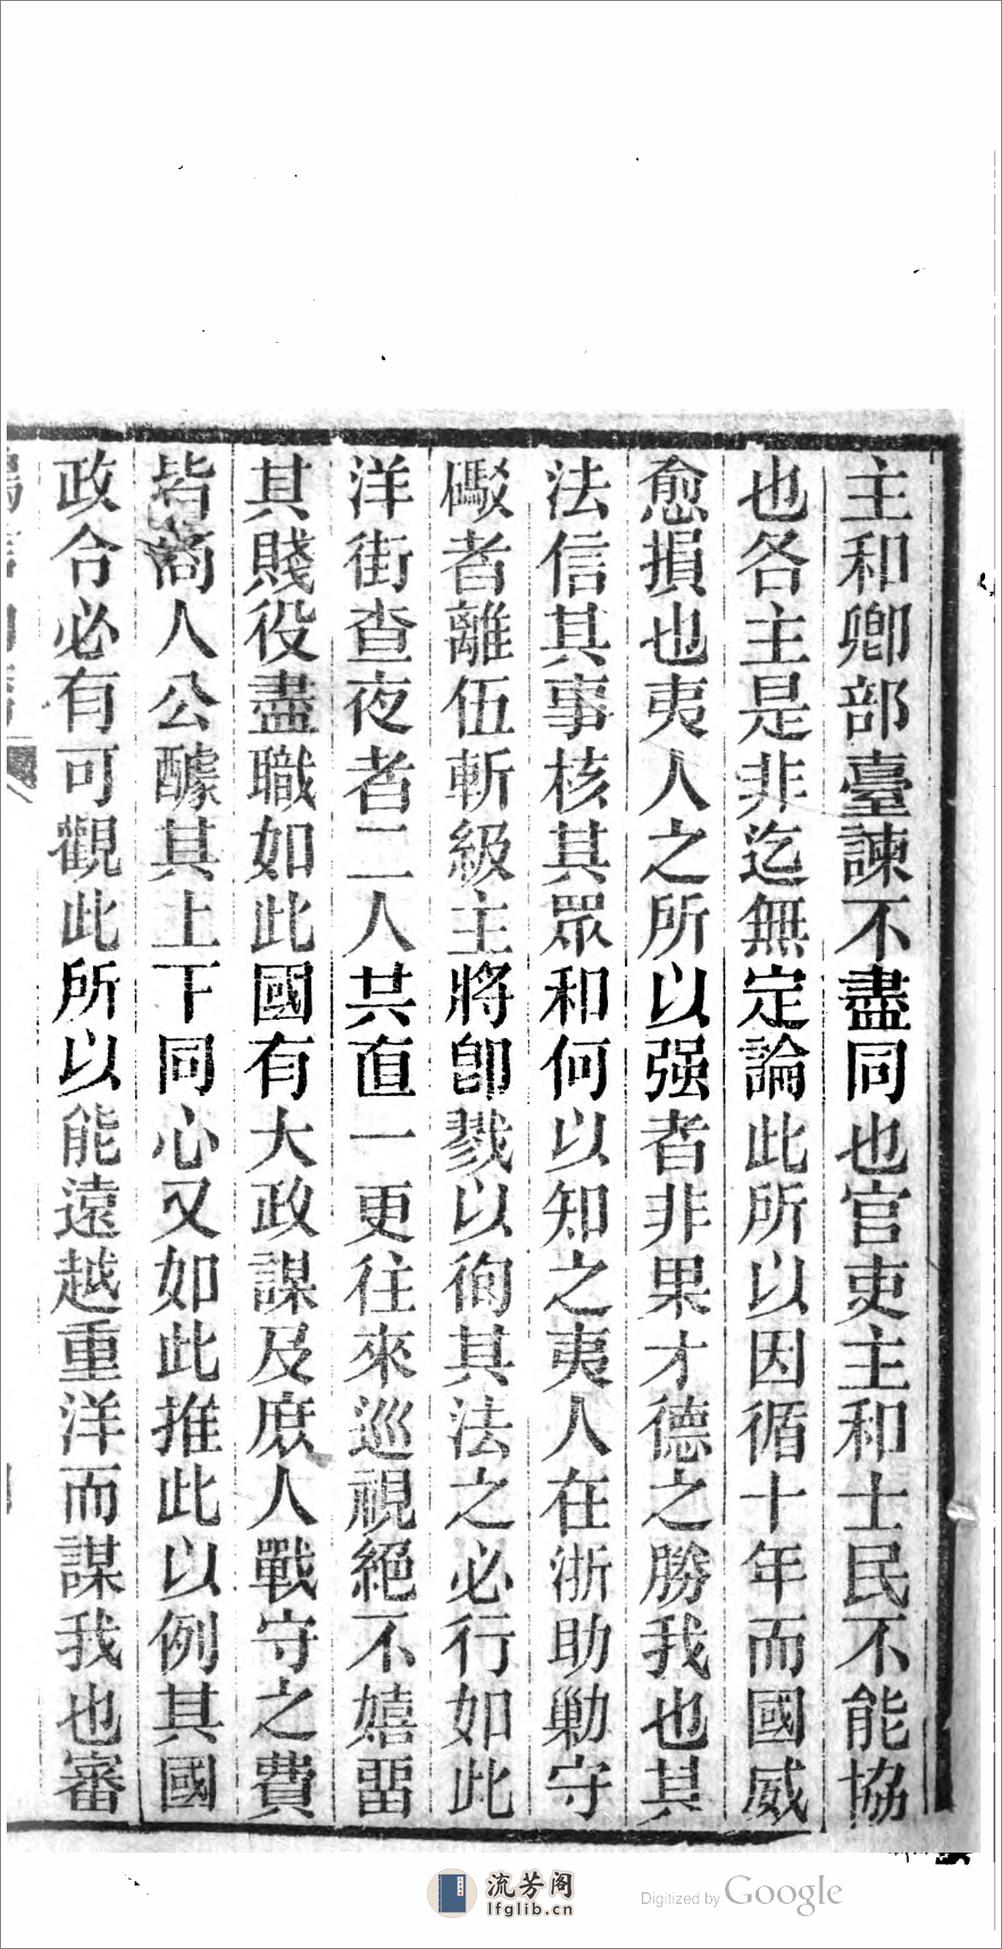 主和卿部臺諫不盡同也官吏主和士民不能協
也各主是非迄無定論此所以因循十年而國威
愈損也夷人之所以强者非果才德之勝我也其
法信其事核其眾和何以知之夷人在浙助勦守
礮者離伍斬級主將卽戮以徇其法之必行如此
洋街查夜者二人共直一更往來巡視絕不嬉畱
其賤役盡職如此國有大政謀及庶人戰守之費
皆商人公醵其上下同心又如此推此以例其國
政合必有可觀此所以能遠越重洋而謀我也審
流芳阁
lfglib.cn
Digitized by Google